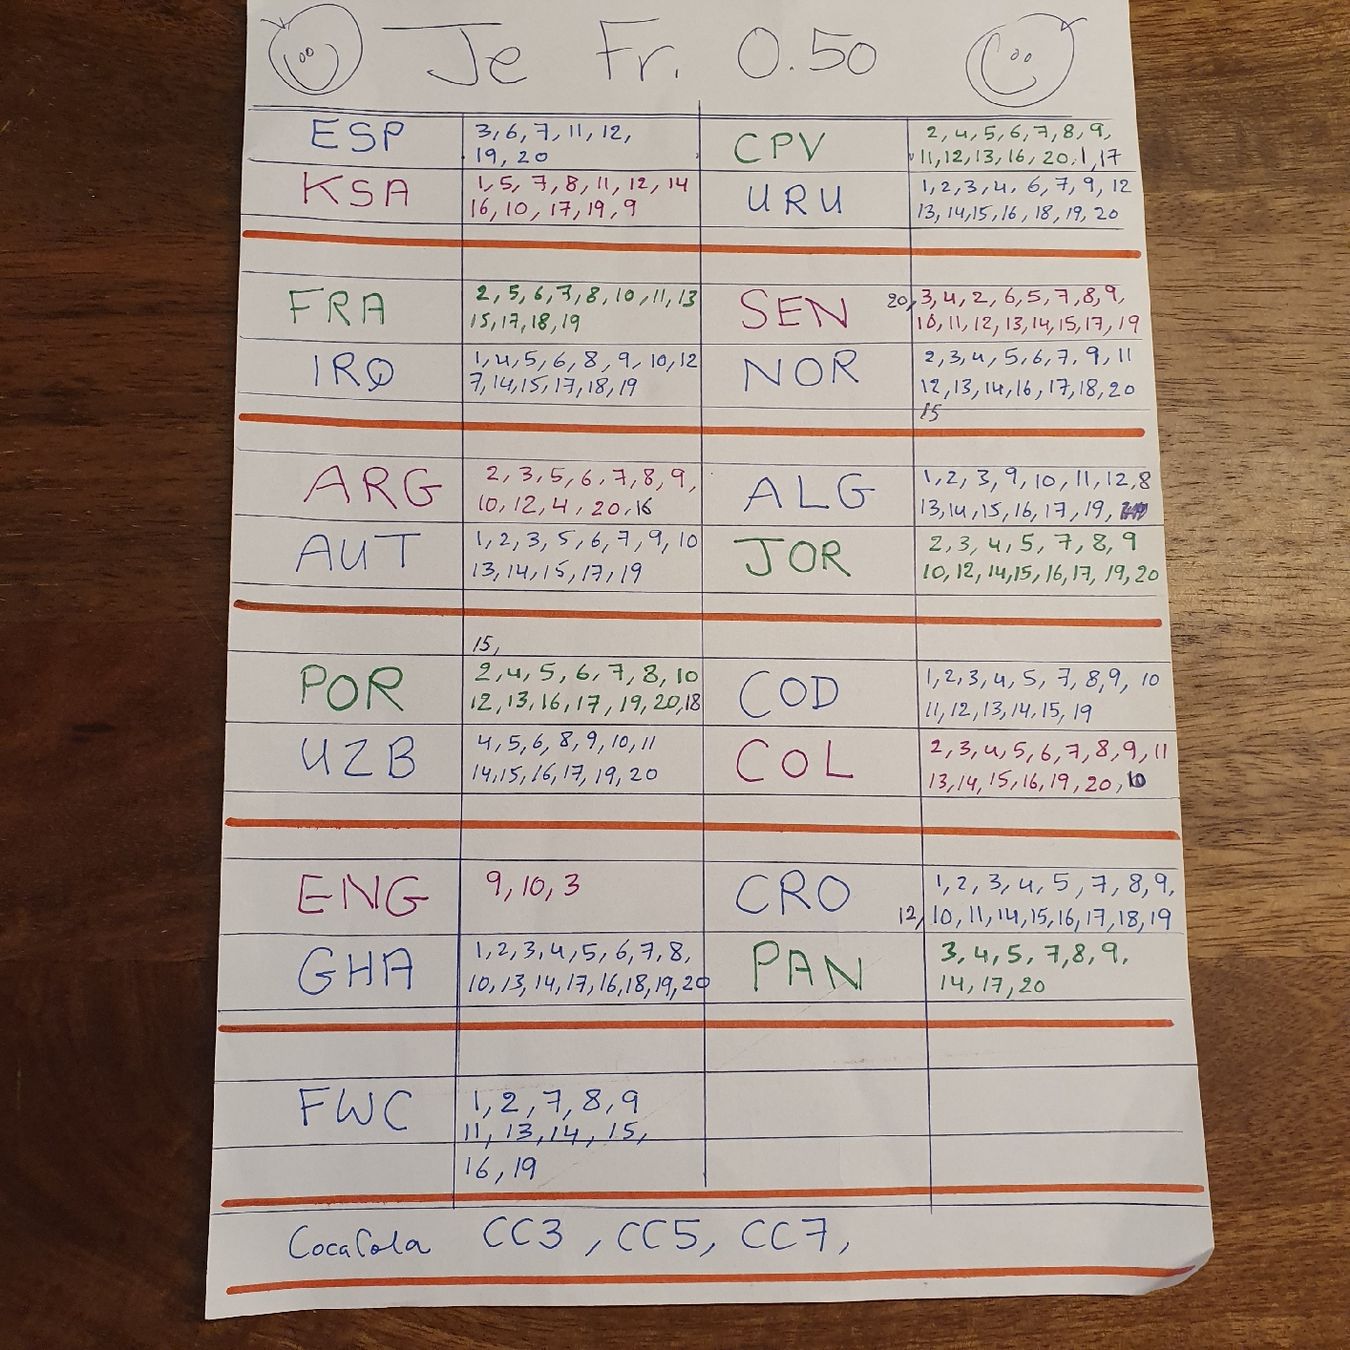 Je Fr. 0.50
ESP 3, 6, 7, 11, 12,
19, 20
CPV 2, 4, 5, 6, 7, 8, 9,
11, 12, 13, 16, 20, 1, 17
KSA 1, 5, 7, 8, 11, 12, 14
16, 10, 17, 19, 9
URU 1, 2, 3, 4, 6, 7, 9, 12
13, 14, 15, 16, 18, 19, 20
FRA 2, 5, 6, 7, 8, 10, 11, 13
15, 17, 18, 19
SEN 20, 3, 4, 2, 6, 5, 7, 8, 9,
10, 11, 12, 13, 14, 15, 17, 19
IRQ 1, 4, 5, 6, 8, 9, 10, 12
7, 14, 15, 17, 18, 19
NOR 2, 3, 4, 5, 6, 7, 9, 11
12, 13, 14, 16, 17, 18, 20
15
ARG 2, 3, 5, 6, 7, 8, 9,
10, 12, 4, 20, 16
ALG 1, 2, 3, 9, 10, 11, 12, 8
13, 14, 15, 16, 17, 19,
AUT 1, 2, 3, 5, 6, 7, 9, 10
13, 14, 15, 17, 19
JOR 2, 3, 4, 5, 7, 8, 9
10, 12, 14, 15, 16, 17, 19, 20
15,
POR 2, 4, 5, 6, 7, 8, 10
12, 13, 16, 17, 19, 20, 18
COD 1, 2, 3, 4, 5, 7, 8, 9, 10
11, 12, 13, 14, 15, 19
UZB 4, 5, 6, 8, 9, 10, 11
14, 15, 16, 17, 19, 20
COL 2, 3, 4, 5, 6, 7, 8, 9, 11
13, 14, 15, 16, 19, 20, 10
ENG 9, 10, 3
CRO 1, 2, 3, 4, 5, 7, 8, 9,
12, 10, 11, 14, 15, 16, 17, 18, 19
GHA 1, 2, 3, 4, 5, 6, 7, 8,
10, 13, 14, 17, 16, 18, 19, 20
PAN 3, 4, 5, 7, 8, 9,
14, 17, 20
FWC 1, 2, 7, 8, 9
11, 13, 14, 15,
16, 19
CocaCola CC3, CC5, CC7,